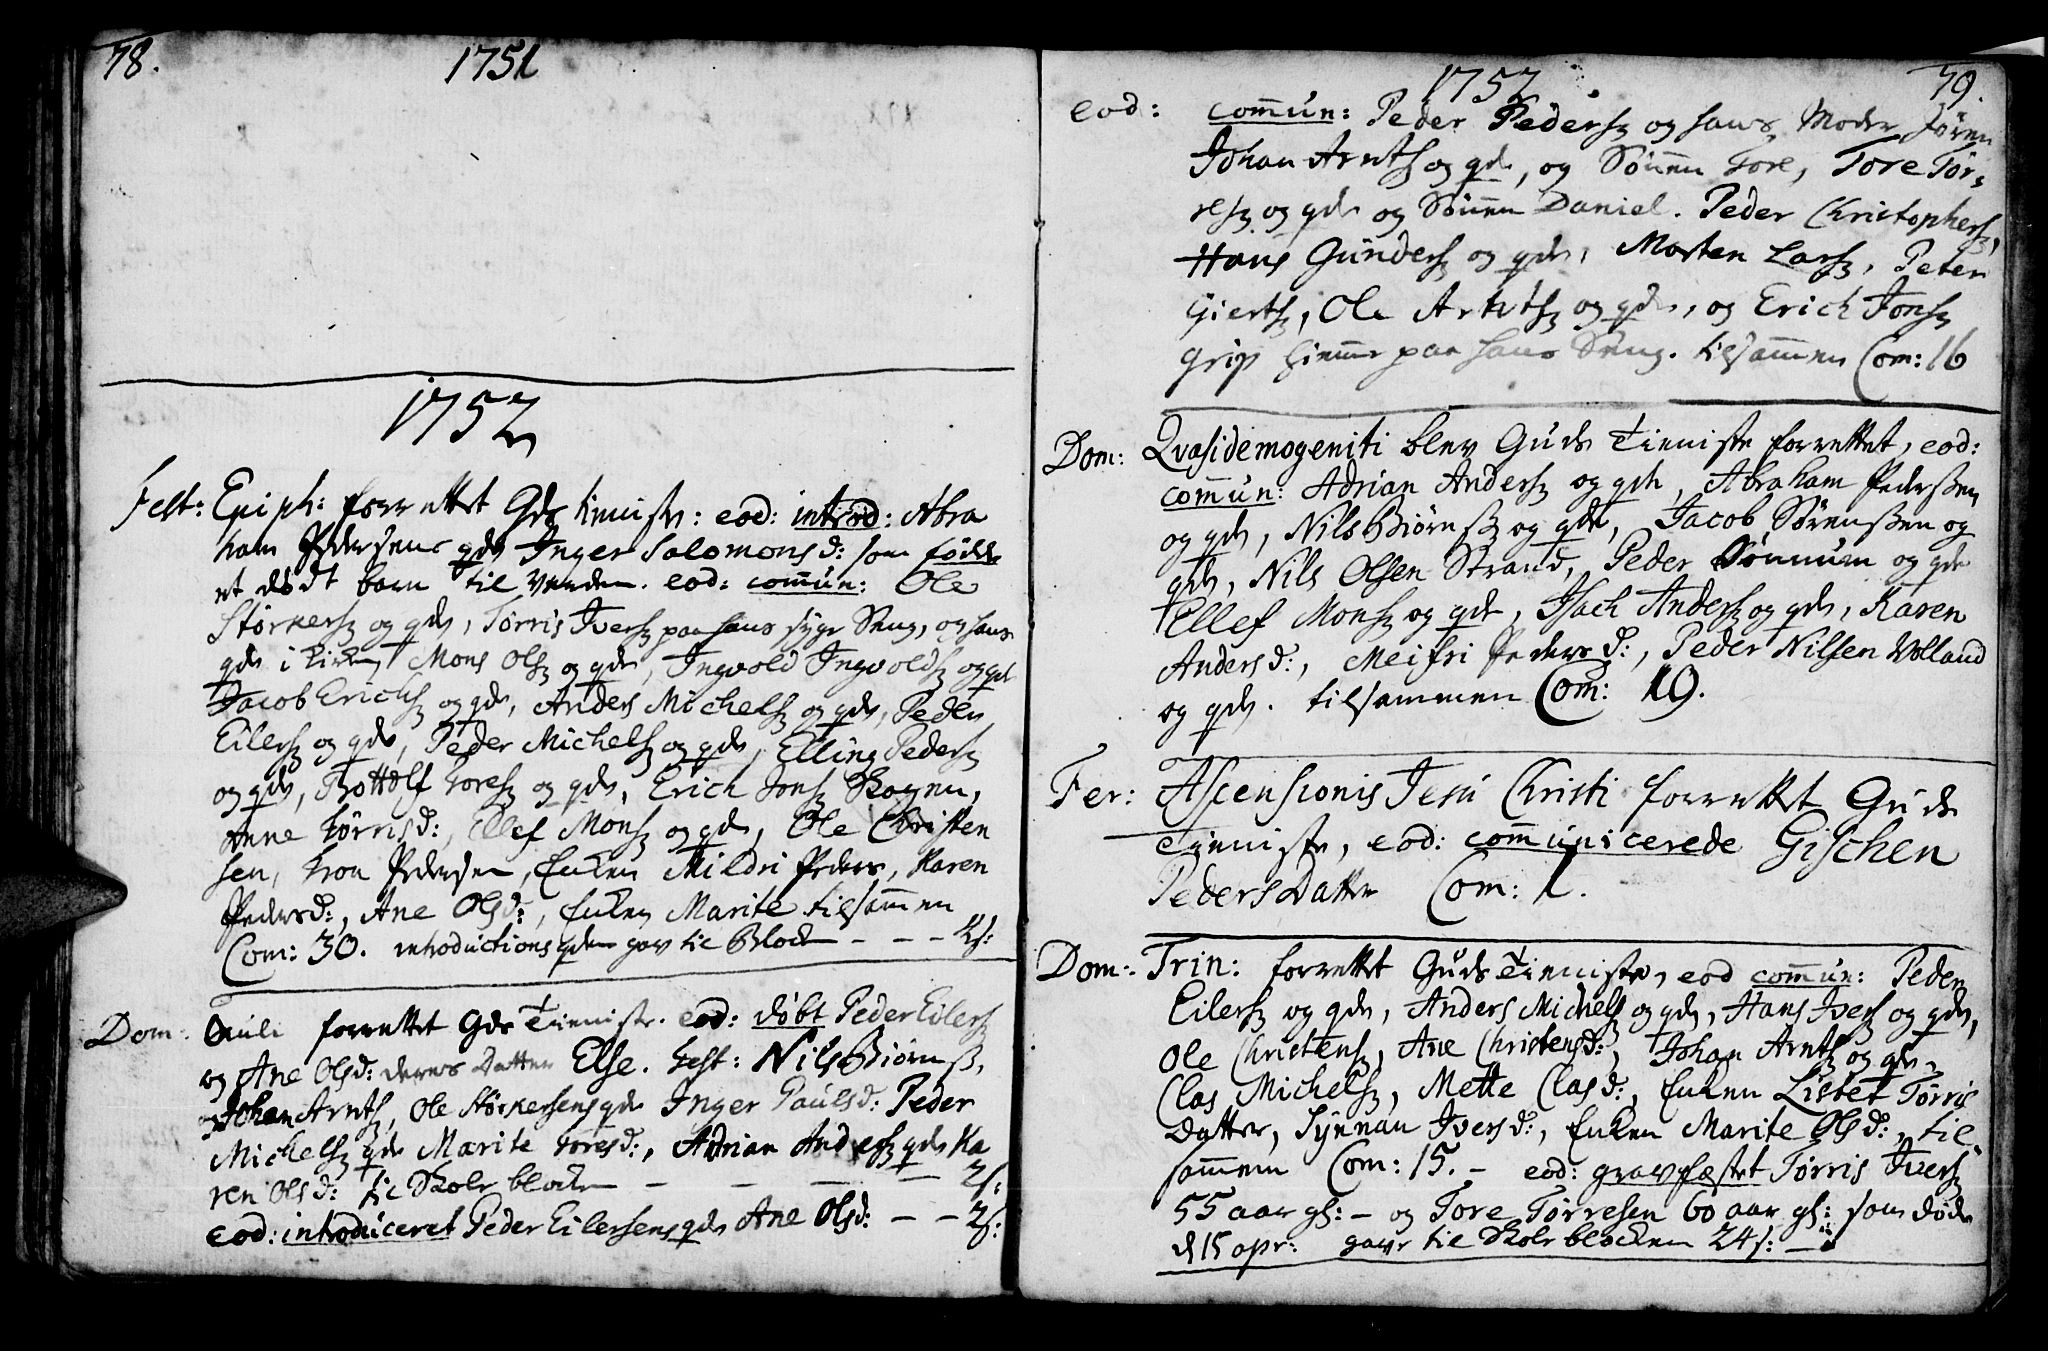 78.
1751
1752
Fest: Epiph: forrettet Gds tieniste: eod: introd: Abra
ham Pedersens qde Inger Salomonsd: som fødde
et dødt barn til verden. eod: commun: Ole
Størkersz og qde, Tørris Iversz paa hans syge Seng, og hans
qde i kirken Mons Olsz og qde, Ingvold Ingvoldsz og qde
Jacob Erichsz og qde, Anders Michelsz og qde, Peder
Eilersz og qde, Peder Michelsz og qde, Elling Pedersz
og qde, Tore­sz og qde, Erich Jonsz Skogen,
Anne Tørrisd:, Ellef Monsz og qde, Ole Christen
sen, Pedersen, Enken Mildri Peders, Karen
Pedersd:, Ane Olsd:, Enken Marite tilsammen
Com: 30. introductions qden gav til Blocken - - - 4s:
Dom: forrettet Gds Tieniste. eod: døbt Peder Eilersz
og Ane Olsd: deres Datter Else. Test: Nils Biørnsz,
og Johan Arntsz, Ole Størkersens qde Inger Paulsd: Peder
Michelsz qde Marite Toresd:, Adrian Andersz qde Ka
ren Olsd: til Skole blocken - - - - 2s:
eod: introduceret Peder Eilersens qde Ane Olsd: - - 2s:
1752
79.
eod: commun: Peder Pedersz og hans Moder Søren
Johan Arntsz og qde, og Sønnen Tore, Tore Tør-
resz og qde og Sønnen Daniel. Peder Christophersz,
Hans Gundersz og qde, Morten Larsz, Peter
Giertsz, Ole Arntsz og qde, og Erich Jonsz
grip hiemme paa hans Seng. tilsammen Com: 16
Dom: Qvasidemogeniti blev Guds Tieniste forrettet, eod:
commun: Adrian Andersz og qde, Abraham Pederssen
og qde, Nils Biørnsz og qde, Jacob Sørenssen og
qde, Nils Olsen Strand, Peder Sønmøen og qde
Ellef Monsz og qde, Isach Andersz og qde, Karen
Andersd:, Meifri Pedersd:, Peder Nilsen Volland
og qde. tilsammen Com: 19.
Fer: Ascensionis Jesu Christi forrettet Guds
Tieniste, eod: communicerede Gischen
Pedersdatter Com: 1.
Dom: Trin: forrettet Guds Tieniste, eod commun: Peder
Eilersz og qde, Anders Michelsz og qde, Hans Iversz og qde,
Ole Christensz, Ane Christensd:, Johan Arntsz og qde,
Clas Michelsz, Mette Clasd:, Enken Lisbet Tørris
Datter, Synnau Iversd:, Enken Marite Olsd:, til
sammen Com: 15. - eod: gravfæstet Tørris Iversz
55 aar gl: - og Tore Tørresen 60 aar gl: som døde
d 15 apr: gave til Skole blocken 24s: -